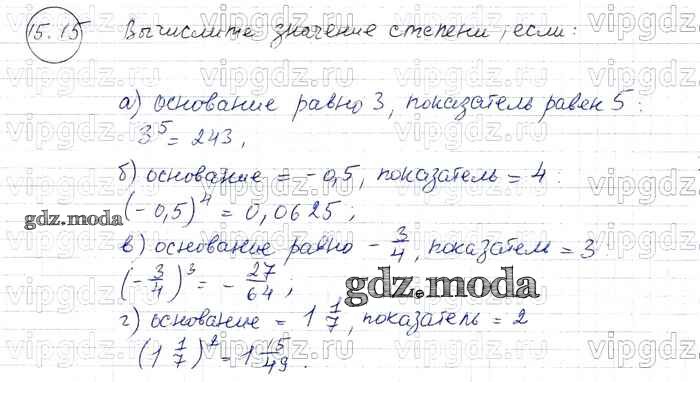 15.15 Вычислите значение степени, если:
а) основание равно 3, показатель равен 5:
3⁵ = 243,
б) основание = -0,5, показатель = 4:
(-0,5)⁴ = 0,0625;
gdz.moda
в) основание равно -3/4, показатель = 3
(-3/4)³ = -27/64;
gdz.moda
г) основание = 1 1/7, показатель = 2
(1 1/7)² = 1 15/49.
vipgdz.ru